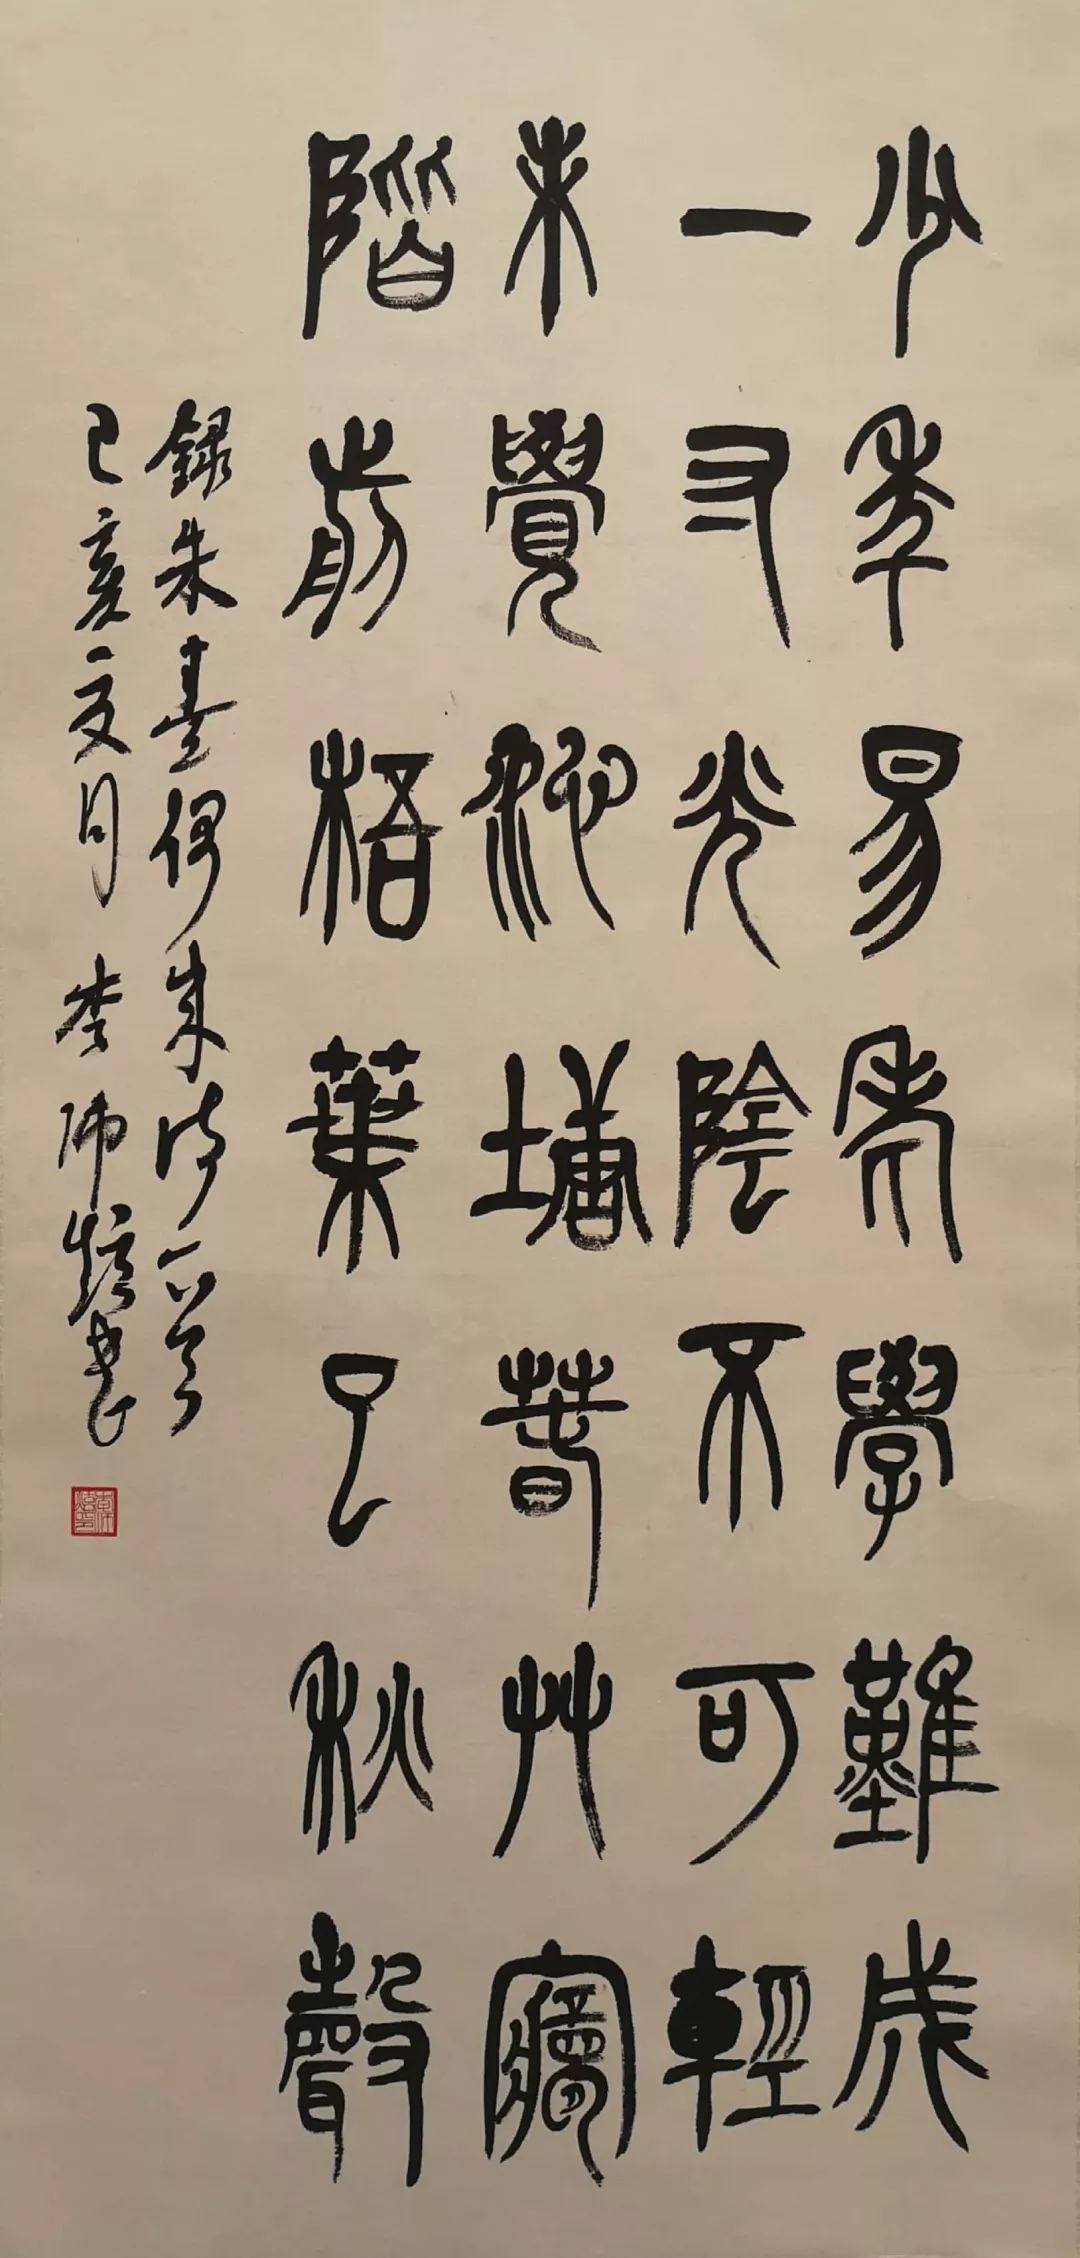 少年易老學難成
一寸光陰不可輕
未覺池塘春草夢
階前梧葉已秋聲
錄朱熹偶成詩一首
己亥夏月 李書